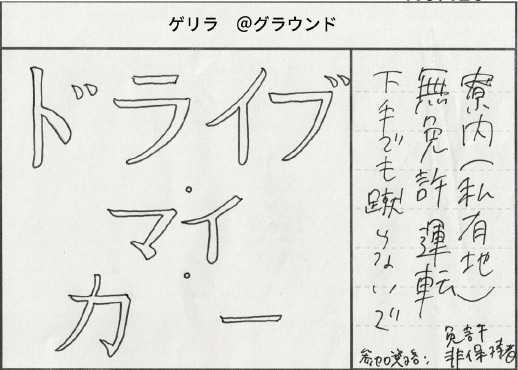 ゲリラ @グラウンド
ドライブ
・
マイ
・
カー
寮内(私有地)
無免許運転
下手でも蹴らないで
参加資格:免許
非保持者